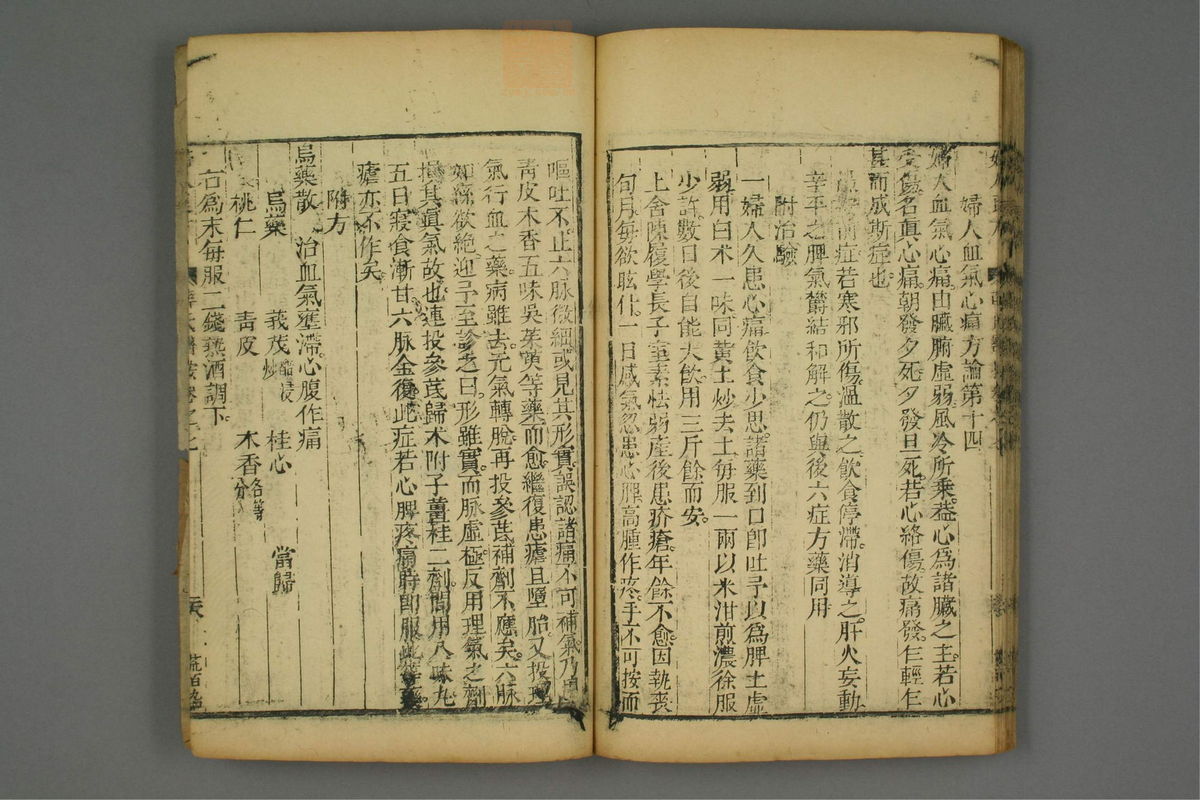 婦人血氣心痛方論第十四
婦人血氣心痛由臟腑虛弱風冷所乘蓋心爲諸臟之主若心
受傷名眞心痛朝發夕死夕發旦死若心絡傷故痛發乍輕乍
甚而成斯症也
前症若寒邪所傷溫散之飲食停滯消導之肝火妄動
辛平之脾氣鬱結和解之仍與後六症方藥同用
附治驗
一婦人久患心痛飲食少思諸藥到口卽吐予以爲脾土虛
弱用白朮一味同黃土炒去土每服一兩以米泔煎濃徐服
少許數日後自能大飲用三斤餘而安
上舍陳履學長子室素怯弱產後患疥瘡年餘不愈因執喪
旬月每欲眩仆一日感氣忽患心脾高腫作疼手不可按而
嘔吐不止六脉微細或見其形實誤認諸痛不可補氣乃用
靑皮木香五味吳茱萸等藥而愈繼復患瘧且墮胎又投理
氣行血之藥病雖去元氣轉脫再投參芪補劑不應矣六脉
如絲欲絶迎予至診之曰形雖實而脉虛極反用理氣之劑
損其眞氣故也連投參芪歸朮附子薑桂二劑間用八味丸
五日寢食漸甘六脉全復此症若心脾疼痛時卽服此等藥
瘧亦不作矣
附方
烏藥散 治血氣壅滯心腹作痛
烏藥 莪茂醋浸炒 桂心 當歸
桃仁 靑皮 木香各等分
右爲末每服二錢熱酒調下